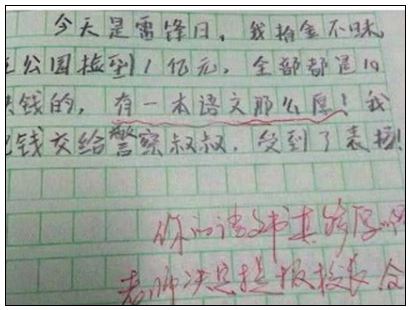 今天是雷锋日，我拾金不昧
公园捡到1亿元，全部都是10
块钱的，有一本语文那么厚！我
把钱交给警察叔叔，受到了表扬！
你的语文书真够厚
老师决定提报校长